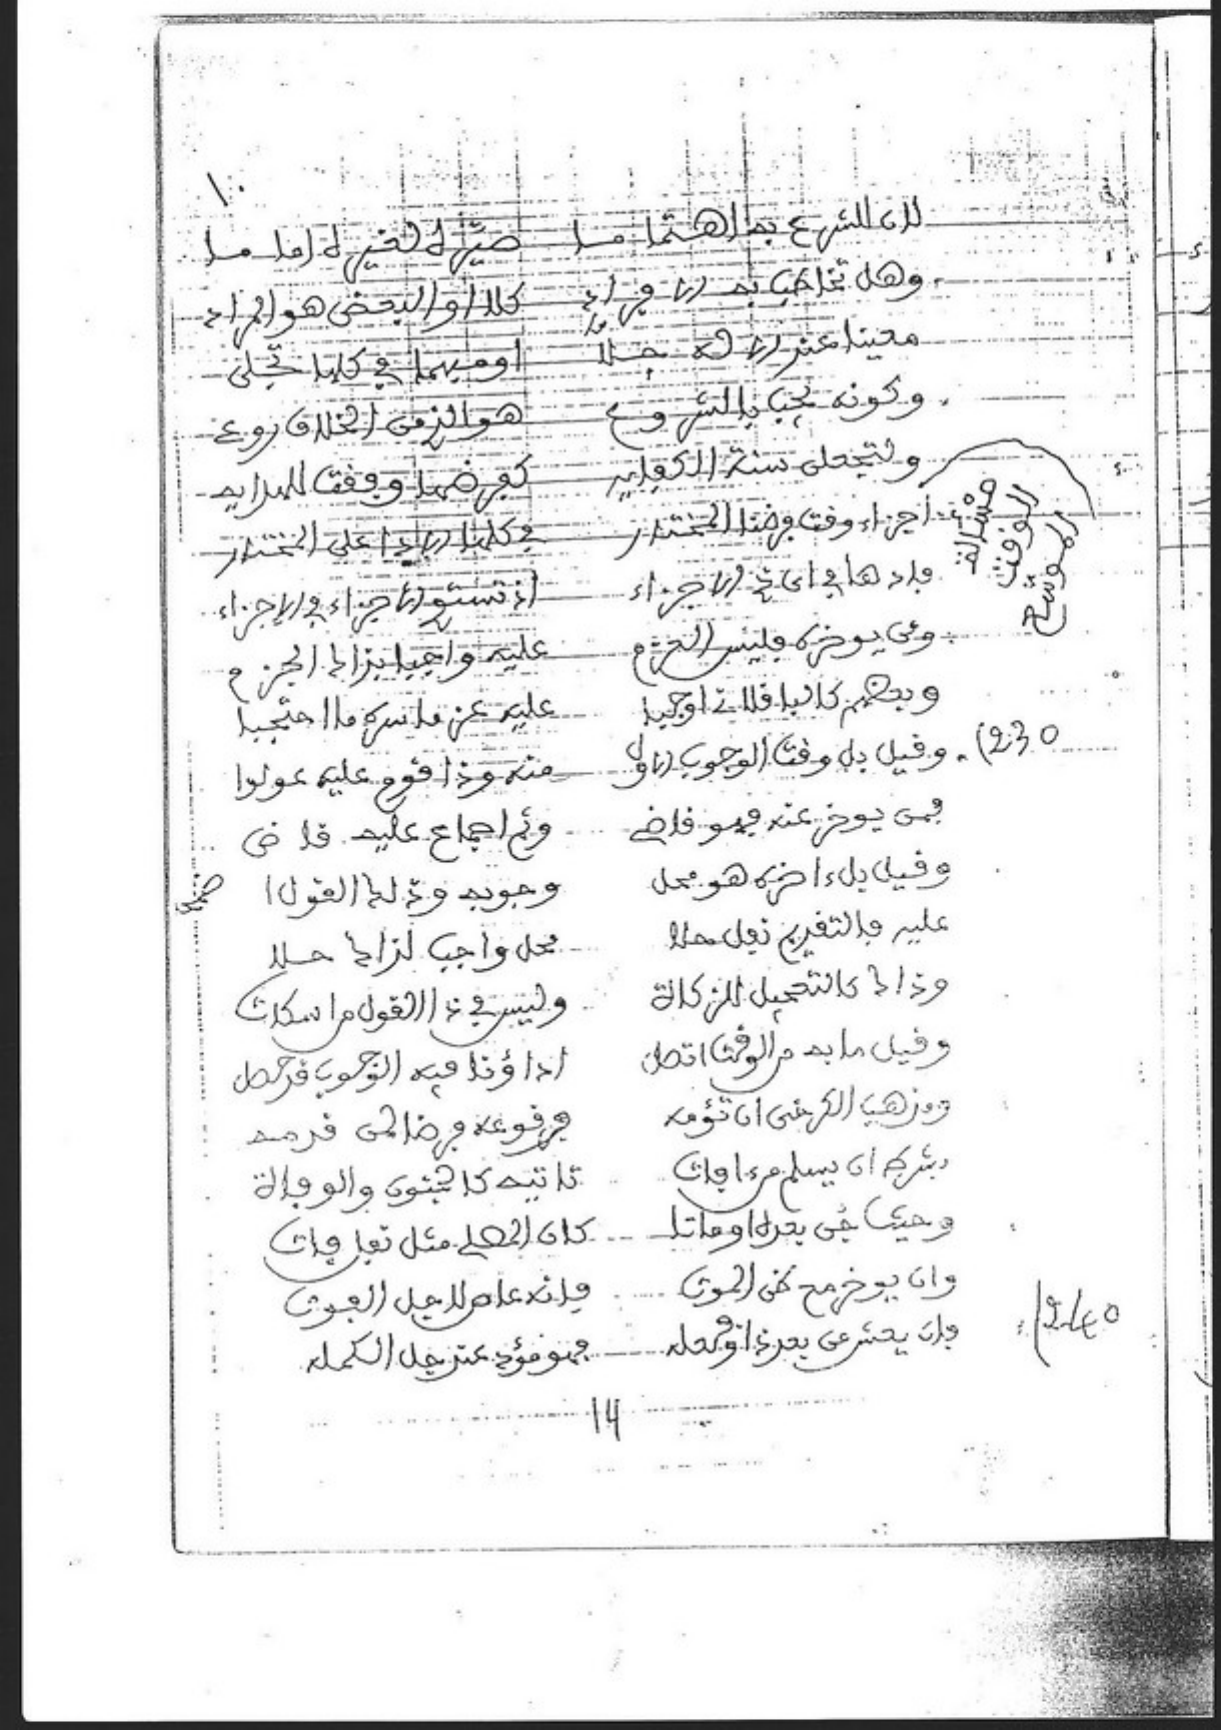 ١٠
لان للشرع به اهتماما صيره لغيره اماما
وهل تخاطب به الافراد كلا او البعض هو المراد
معينا عند الاله جلا او مبهما في كلها تجلى
وكونه يجب بالشروع هو الذي الخلاف روع
ولتجعلن سنة الكفايه كفرضها وقفت للهدايه
مسئلة الوقت الموسع
اجزاء وقت فرضنا المختار في كلها الادا على المختار
فادها في اي ذي الاجزاء اذ تستوي الاجزاء في الاجزاء
ومن يوخره فليس العزم عليه واجبا بذاك الجزم
وبعضهم كالباقلاني اوجبا عليه عزما سره ما احتجبا
230) وقيل بل وقت الوجوب الاول منه وذا قوم عليه عولوا
فمن يوخر عنه فهو قاضي وثم اجماع عليه قاض
وقيل بل ءاخره هو محل وجوبه وذلك القول
عليه فالتقديم نفل حلا محل واجب لذاك حلا
وذاك كالتعجيل للزكاة وليس في ذا القول من اسكات
وقيل ما به من الوقت اتصل اداؤنا فيه الوجوب قد حصل
ومذهب الكرخي ان تؤمه فوقوعه فرضا لمن قدمه
بشرط ان يسلم من ءافات تاتيه كالجنون والوفاة
وحيث جن بعده او ماتا كان المصلى مثل نفل فات
وان يوخر مع ظن الموت فانه عاص لاجل الفوت
240) فان يعش من بعد ذا وفعله فهو مؤد عند جل الكمله
14